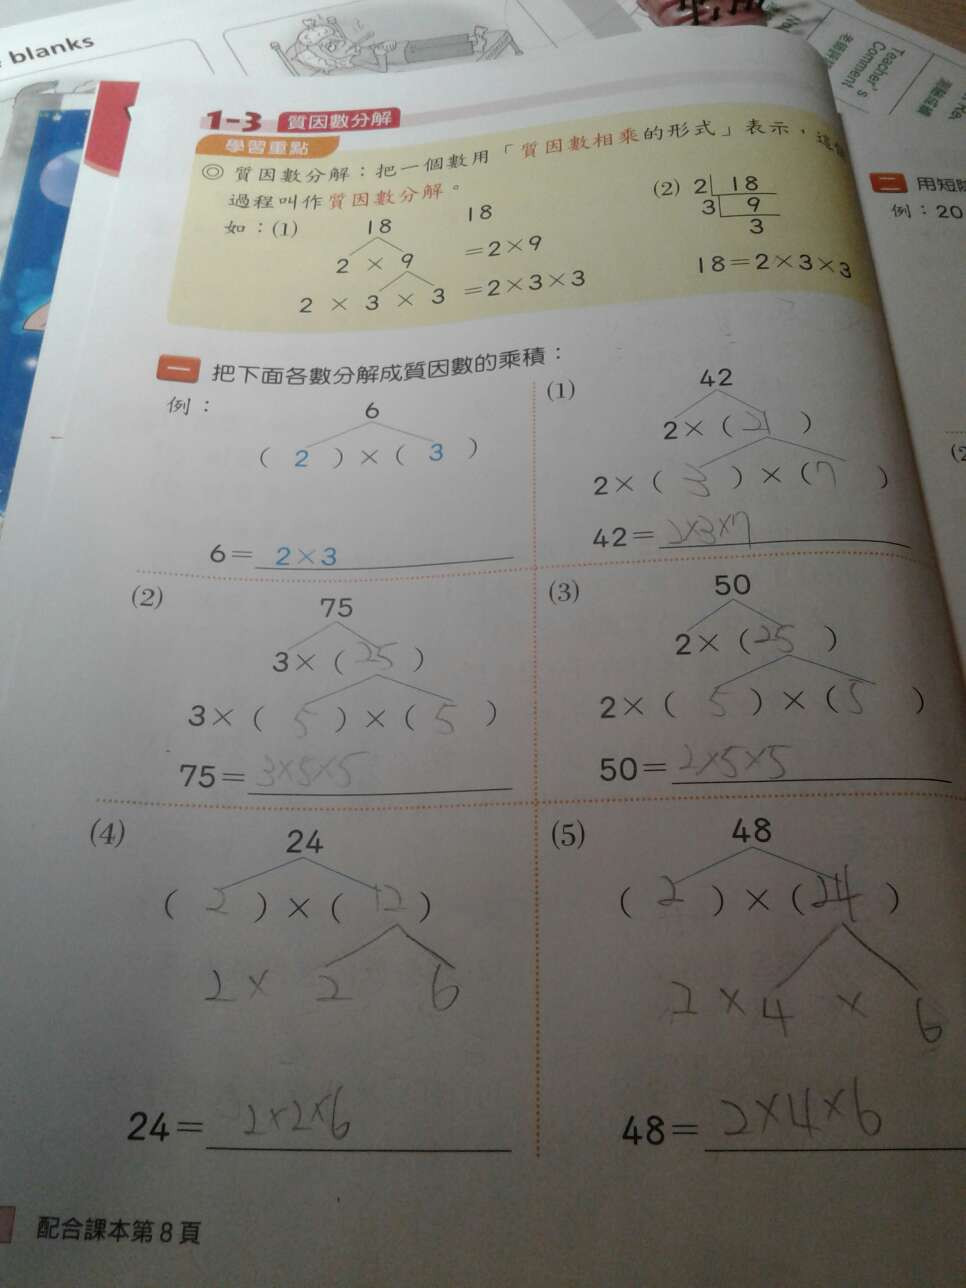 blanks
Teacher's
Comment
1-3 質因數分解
學習重點
◎ 質因數分解：把一個數用「質因數相乘的形式」表示，這
過程叫作質因數分解。
如：(1)
18
2 × 9
2 × 3 × 3
18
=2×9
=2×3×3
(2) 2 18
3 9
3
18=2×3×3
一 把下面各數分解成質因數的乘積：
例：
6
( 2 ) × ( 3 )
6= 2×3
(1)
42
2× ( 21 )
2× ( 3 ) × ( 7 )
42= 2×3×7
(2)
75
3× ( 25 )
3× ( 5 ) × ( 5 )
75= 3×5×5
(3)
50
2× ( 25 )
2× ( 5 ) × ( 5 )
50= 2×5×5
(4)
24
( 2 ) × ( 12 )
2 × 2 6
24= 2×2×6
(5)
48
( 2 ) × ( 24 )
2 × 4 × 6
48= 2×4×6
配合課本第8頁
二 用短除
例：20
(2